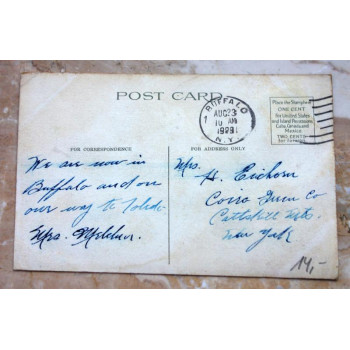 POST CARD
BUFFALO
AUG 23
10 AM
N.Y.
Place the Stamp here
ONE CENT
for United States
and Island Possessions
Cuba, Canada and
Mexico
TWO CENTS
for Foreign
FOR CORRESPONDENCE
We are now in
Buffalo and on
our way to Toledo
Mrs.
FOR ADDRESS ONLY
Mrs.
H. Eichorn
Co
Catskill Mts.
New York
14,-